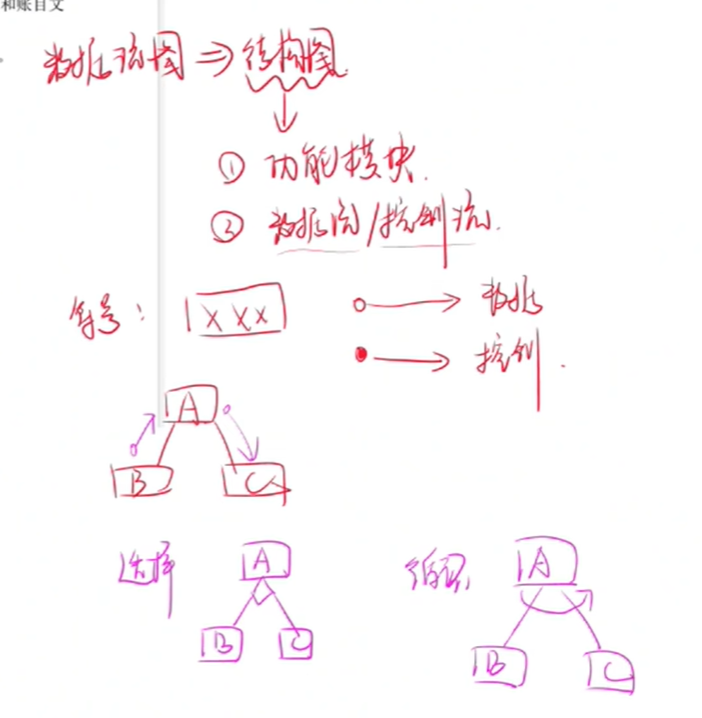 和账目文
数据流图 ⇒ 结构图
① 功能模块.
② 数据流/控制流.
符号: XXX 数据
控制.
A
B C
选择 A
B C
循环 A
B C